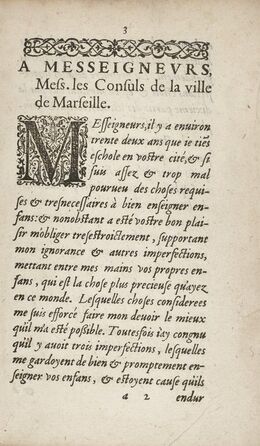 3
A MESSEIGNEVRS,
Mess. les Consuls de la ville
de Marseille.
MEsseigneurs, il y a enuiron
trente deux ans que ie ties
eschole en vostre cité, & si
suis assez & trop mal
pourueu des choses requi-
ses & tresnecessaires à bien enseigner en-
fans: & nonobstant a esté vostre bon plai-
sir m'obliger tresestroictement, supportant
mon ignorance & autres imperfections,
mettant entre mes mains voz propres en-
fans, qui est la chose plus precieuse quayez
en ce monde. Lesquelles choses considerees
me suis efforcé faire mon deuoir le mieux
quil m'a esté possible. Toutesfois iay congnu
quil y auoit trois imperfections, lesquelles
me gardoyent de bien & promptement en-
seigner voz enfans, & estoyent cause quils
a 2 endur